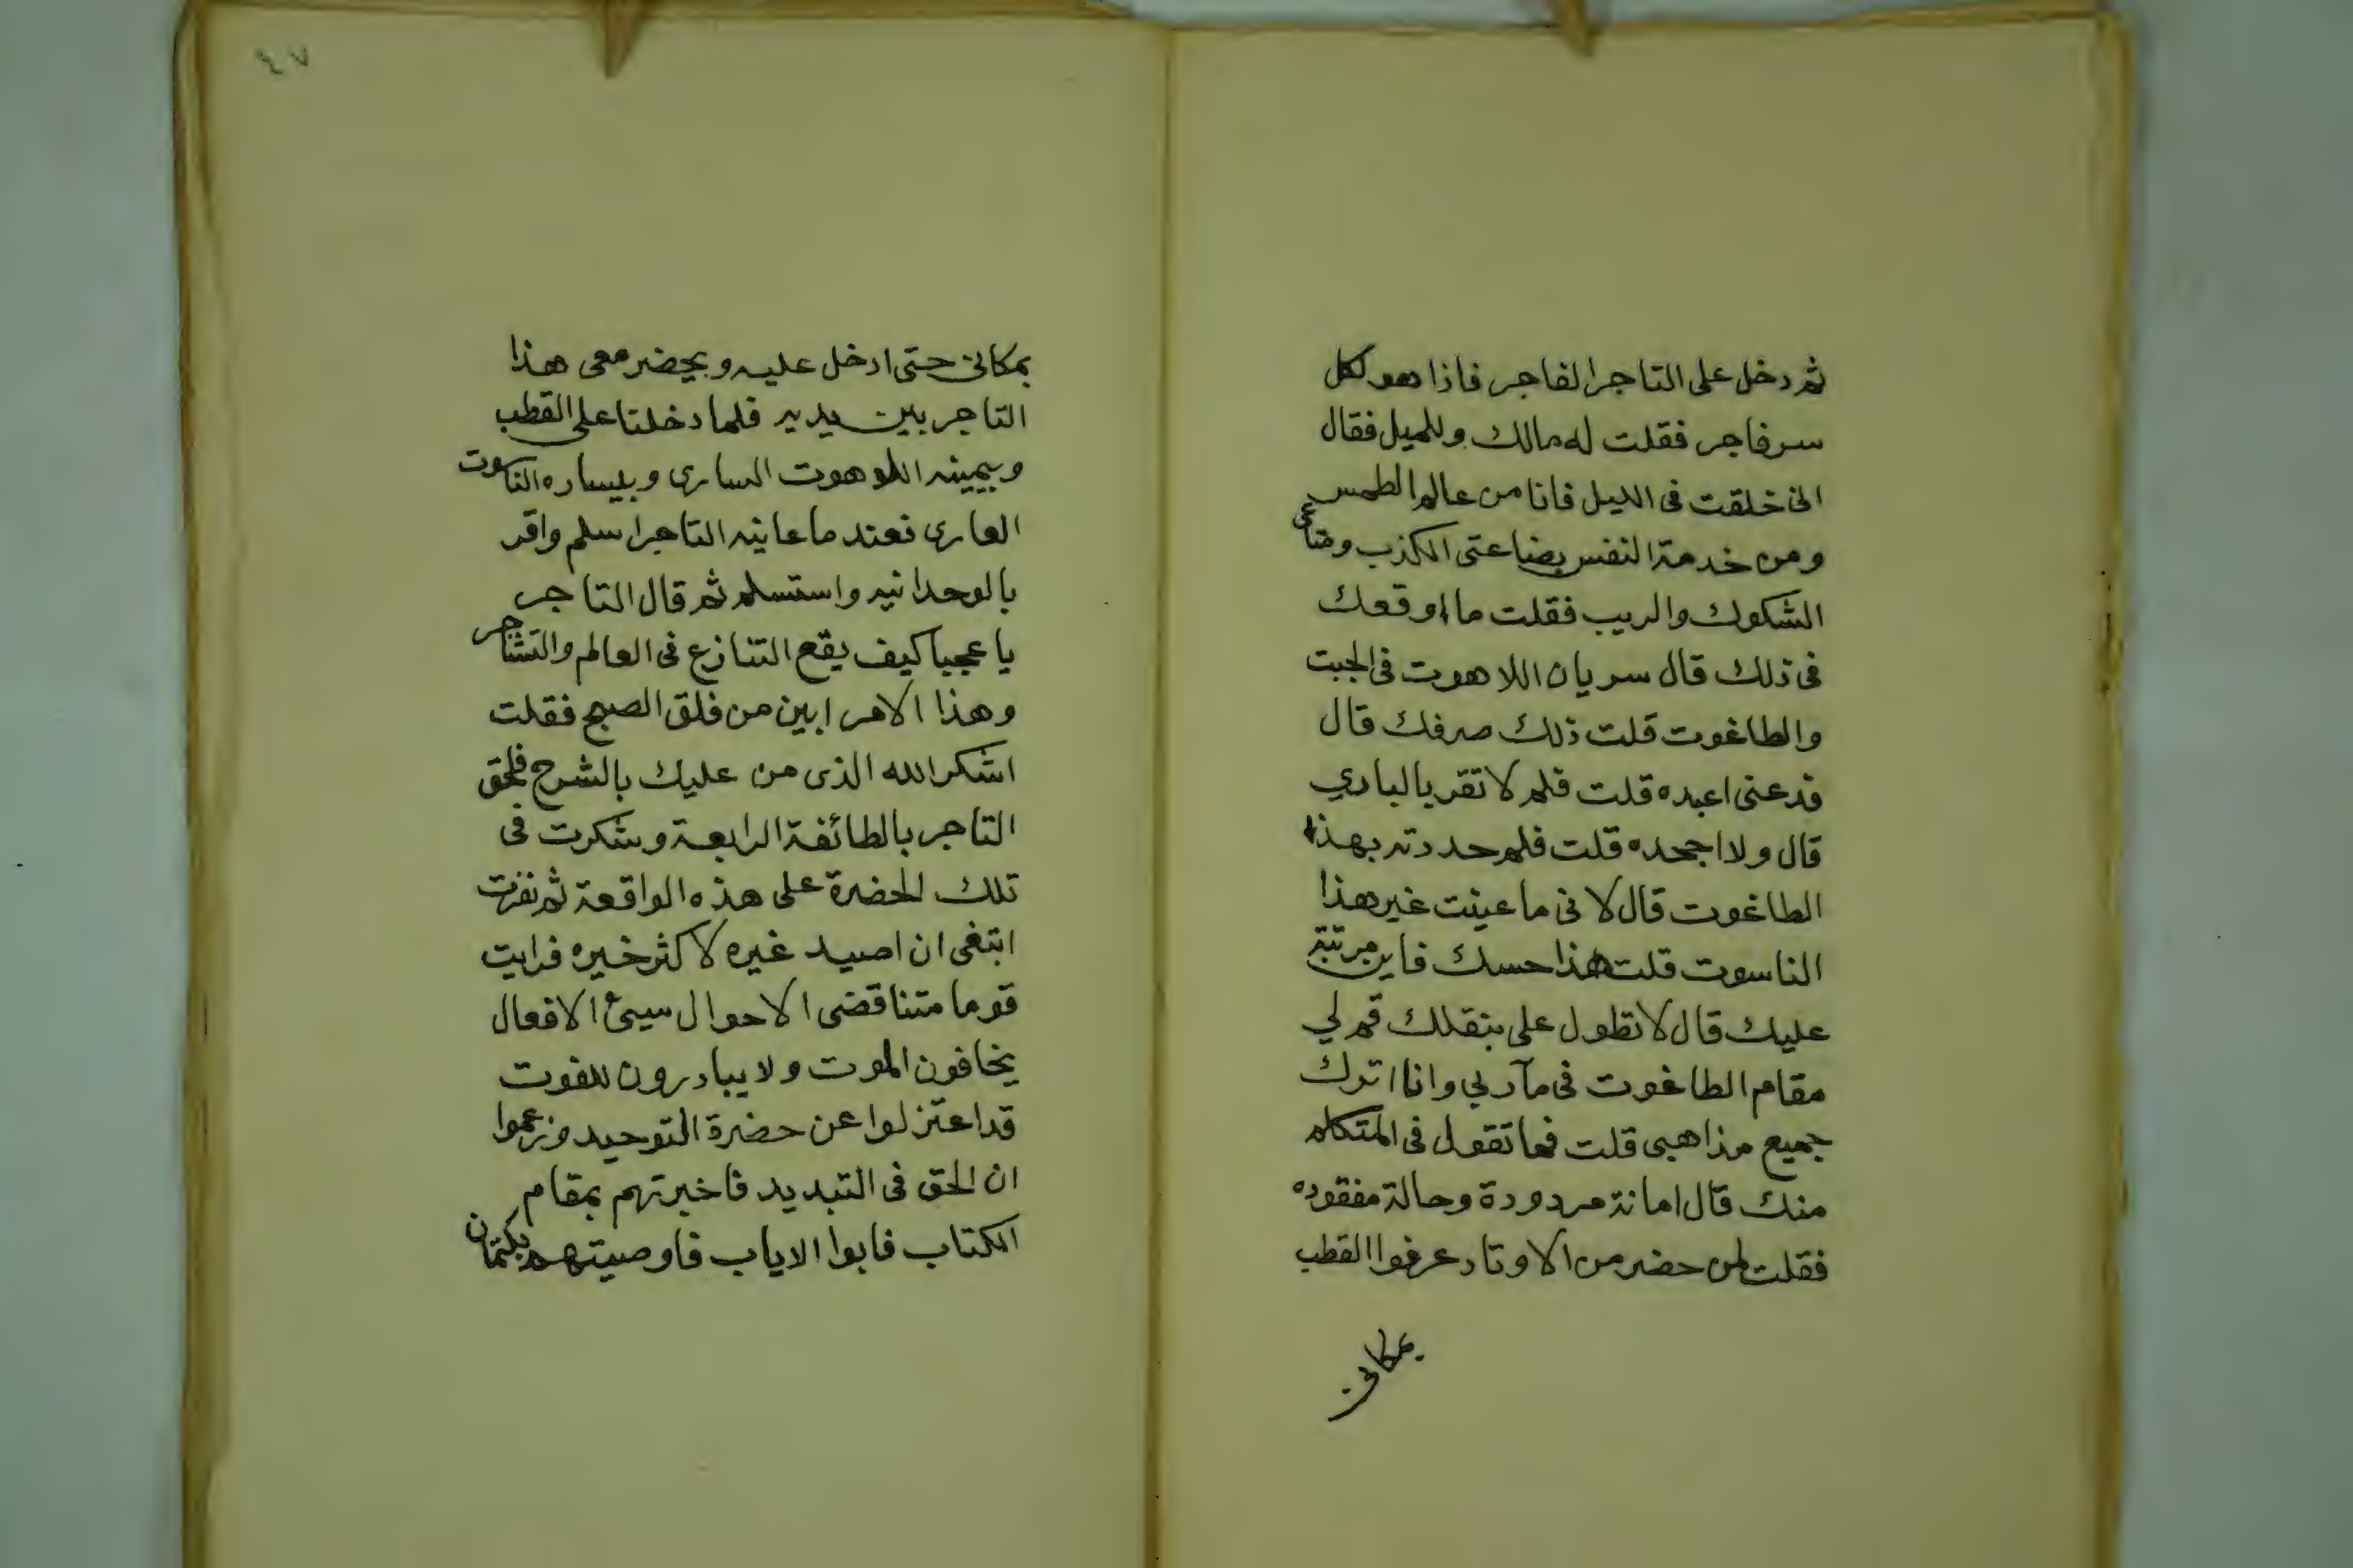 ثم دخل على التاجر الفاجر فاذا هو لكل
سر فاجر فقلت له مالك ولليل فقال
اني خلقت في الليل فانا من عالم الطمس
ومن خدمة النفس بضاعتى الكذب ومتاعى
الشكوك والريب فقلت ما اوقعك
فى ذلك قال سريان اللاهوت فى الجبت
والطاغوت قلت ذلك صرفك قال
فدعنى اعبده قلت فلم لا تقر بالباري
قال ولا اجحده قلت فلم حددته بهذا
الطاغوت قال لانى ما عينت غير هذا
الناسوت قلت هذا حسك فاين مرتبته
عليك قال لا تطول على بنقلك قم لي
مقام الطاغوت فى مآربي وانا اترك
جميع مذاهبى قلت فما تقول فى المتكلم
منك قال امانة مردودة وحالة مفقوده
فقلت لمن حضر من الاوتاد عرفوا القطب
بمكانى
٤٧
بمكانى حتى ادخل عليه ويحضر معى هذا
التاجر بين يديه فلما دخلنا على القطب
وبيمينه اللاهوت السارى وبيساره الناسوت
العارى فعند ما عاينه التاجر اسلم واقر
بالوحدانيه واستسلم ثم قال التاجر
يا عجبا كيف يقع التنازع فى العالم والتشاجر
وهذا الامر ابين من فلق الصبح فقلت
اشكر الله الذى من عليك بالشرح فلحق
التاجر بالطائفة الرابعة وشكرت فى
تلك الحضرة على هذه الواقعة ثم نفرت
ابتغى ان اصيد غيره لاكثر خيره فرايت
قوما متناقضى الاحوال سيئ الافعال
يخافون الموت ولا يبادرون للفوت
قد اعتزلوا عن حضرة التوحيد وزعموا
ان الحق فى التبديد فاخبرتهم بمقام
الكتاب فابوا الاياب فاوصيتهم بكتمان